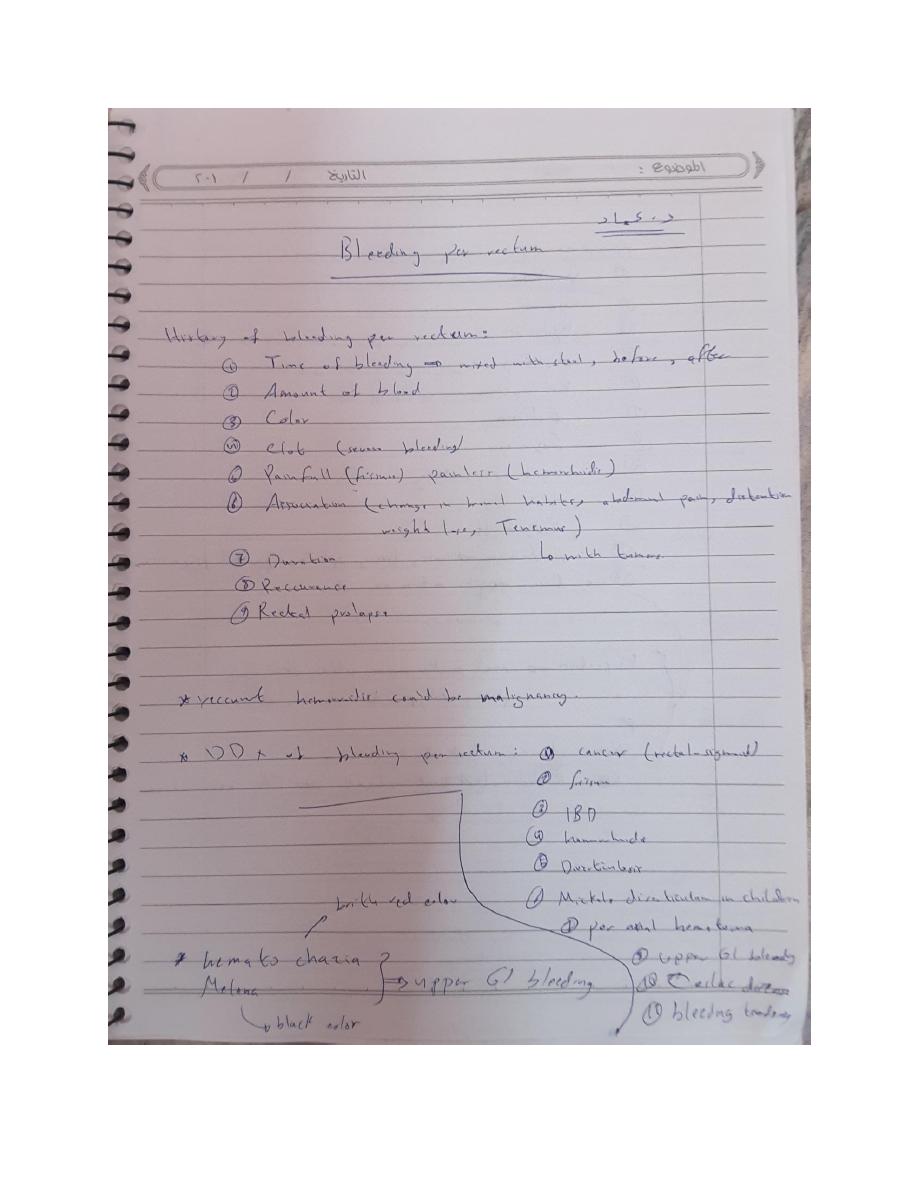 الموضوع :
التاريخ / / ٢٠١
د. عماد
Bleeding per rectum
History of bleeding per rectum:
① Time of bleeding → mixed with stool, before, after
② Amount of blood
③ Color
④ clot (severe bleeding)
⑤ Painfull (fissure) painless (hemorrhoids)
⑥ Association (change in bowel habits, abdominal pain, distention
weight loss, Tenesmus)
↳ with tumors
⑦ Duration
⑧ Reccurance
⑨ Rectal prolapse
* reccurnt hemorroids could be malignancy.
* DDx of bleeding per rectum: ① cancer (rectal-sigmoid)
② fissure
③ IBD
④ hemorrhoids
⑤
⑥ diverticulum in children
per anal hematoma
⑨ upper GI bleeding
⑩ Celiac disease
⑪ bleeding tendency
red color
* hemato chazia
Melena
} ⇒ upper GI bleeding
↳ black color